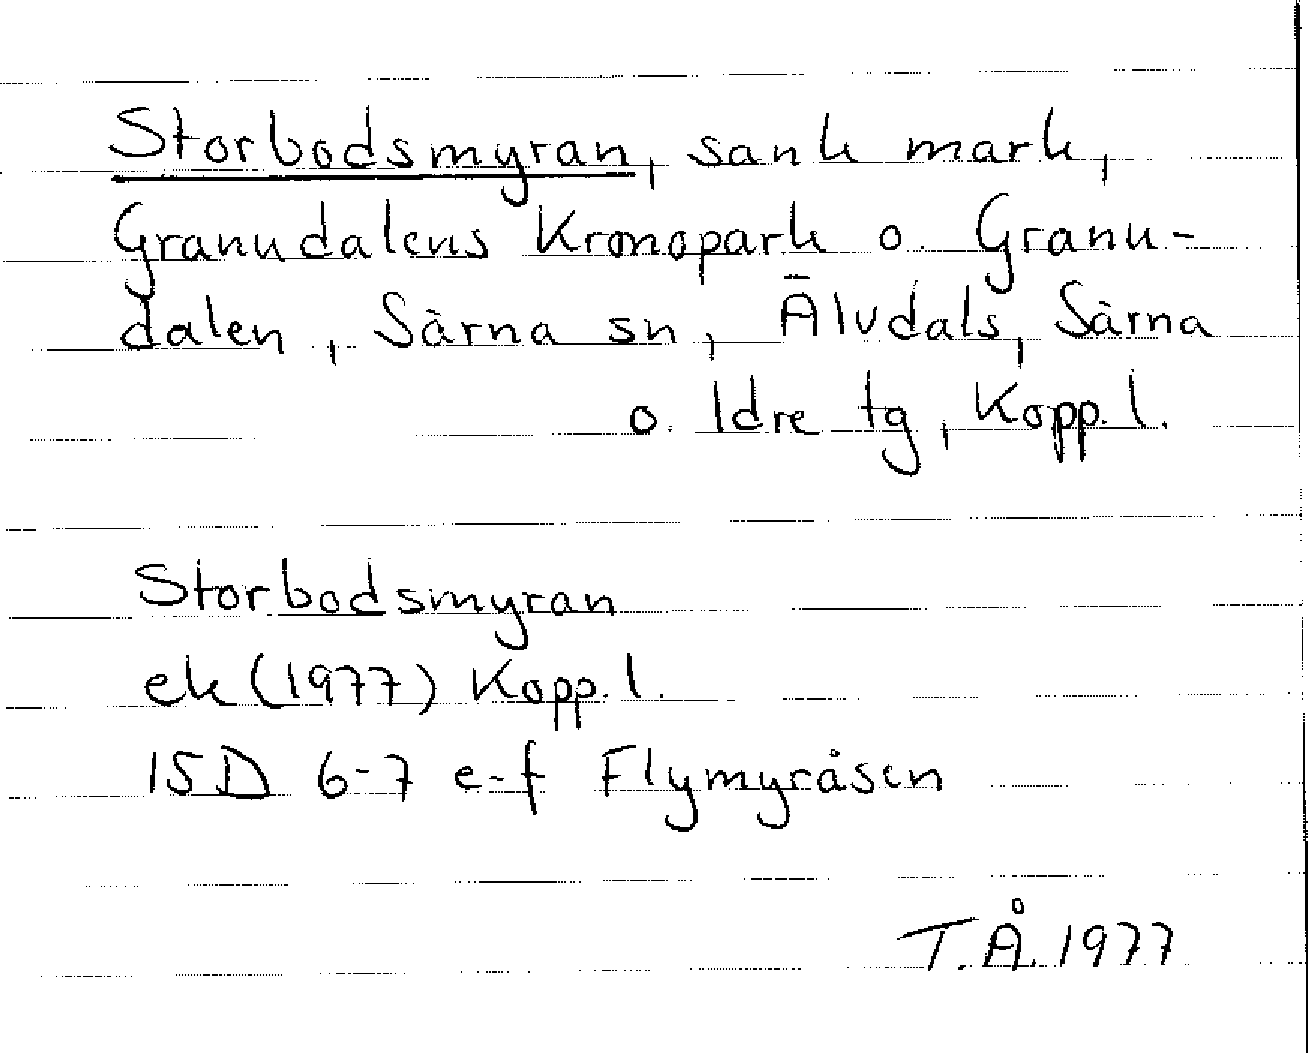 Storbodsmyran, sank mark,
Granudalens Kronopark o. Granu-
dalen, Särna sn, Älvdals, Särna
o. Idre tg, Kopp. l.
Storbodsmyran
ek (1977) Kopp. l.
15D 6-7 e-f Flymyråsen
T.Å. 1977